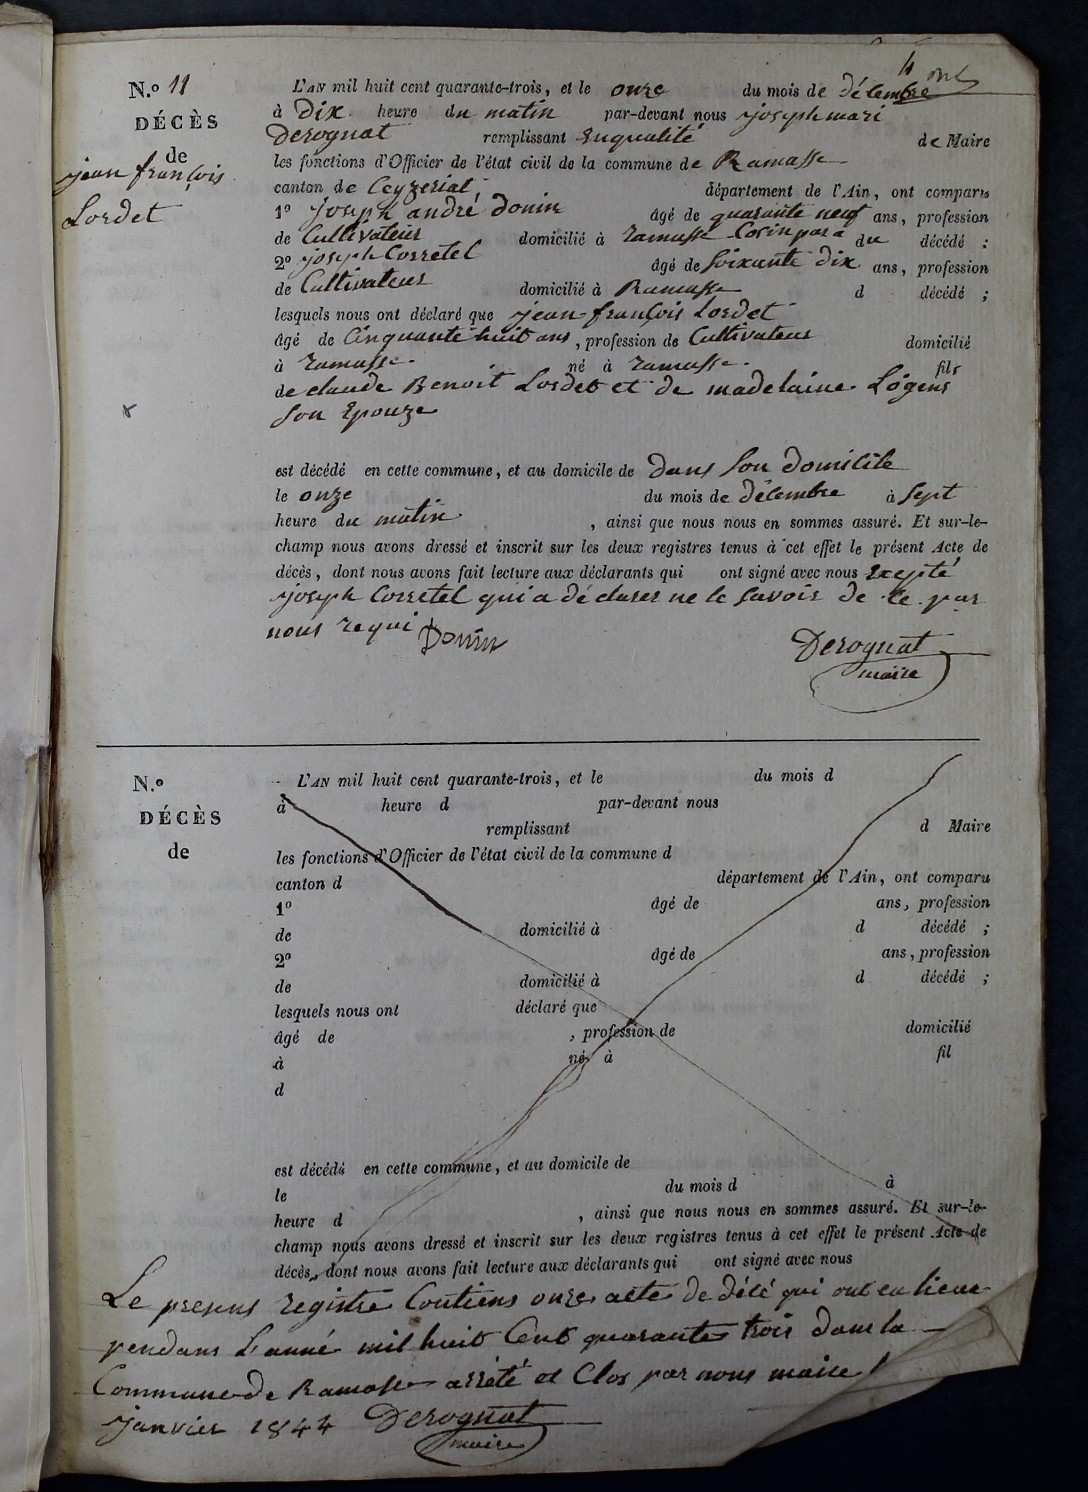 N.º 11
DÉCÈS
de
jean françois
Lordet
L'AN mil huit cent quarante-trois, et le onze du mois de décembre
à Dix heure du matin par-devant nous joseph mari
Derognat remplissant Enqualité de Maire
les fonctions d'Officier de l'état civil de la commune de Ramasse
canton de Ceyzeriat, département de l'Ain, ont comparu
1º Joseph andré Donin âgé de quarante neuf ans, profession
de Cultivateur domicilié à ramasse du décédé ;
2º joseph Corretel âgé de Soixante dix ans, profession
de Cultivateur domicilié à Ramasse d décédé ;
lesquels nous ont déclaré que jean françois Lordet
âgé de Cinquante huit ans, profession de Cultivateur domicilié
à ramasse né à ramasse fils
de claude Benoit Lordet et de madelaine Logens
Son Epouze
est décédé en cette commune, et au domicile de dans Son domicile
le onze du mois de décembre à Sept
heure du matin , ainsi que nous nous en sommes assuré. Et sur-le-
champ nous avons dressé et inscrit sur les deux registres tenus à cet effet le présent Acte de
décès, dont nous avons fait lecture aux déclarants qui ont signé avec nous Excepté
joseph Corretel qui a déclarer ne le Savoir de ce par
nous requi Donin Derognat
maire
N.º
DÉCÈS
de
L'AN mil huit cent quarante-trois, et le du mois d
à heure d par-devant nous
remplissant d Maire
les fonctions d'Officier de l'état civil de la commune d
canton d département de l'Ain, ont comparu
1º âgé de ans, profession
de domicilié à d décédé ;
2º âgé de ans, profession
de domicilié à d décédé ;
lesquels nous ont déclaré que
âgé de , profession de domicilié
à né à fil
d
est décédé en cette commune, et au domicile de
le du mois d à
heure d , ainsi que nous nous en sommes assuré. Et sur-le-
champ nous avons dressé et inscrit sur les deux registres tenus à cet effet le présent Acte de
décès, dont nous avons fait lecture aux déclarants qui ont signé avec nous
Le presens registre Contiens onze acte de décé qui ont eu lieue
pendans L'anné mil huit Cent quarante trois dans la
Commune de Ramasse arrêté et Clos par nous maire
janvier 1844 Derognat
maire